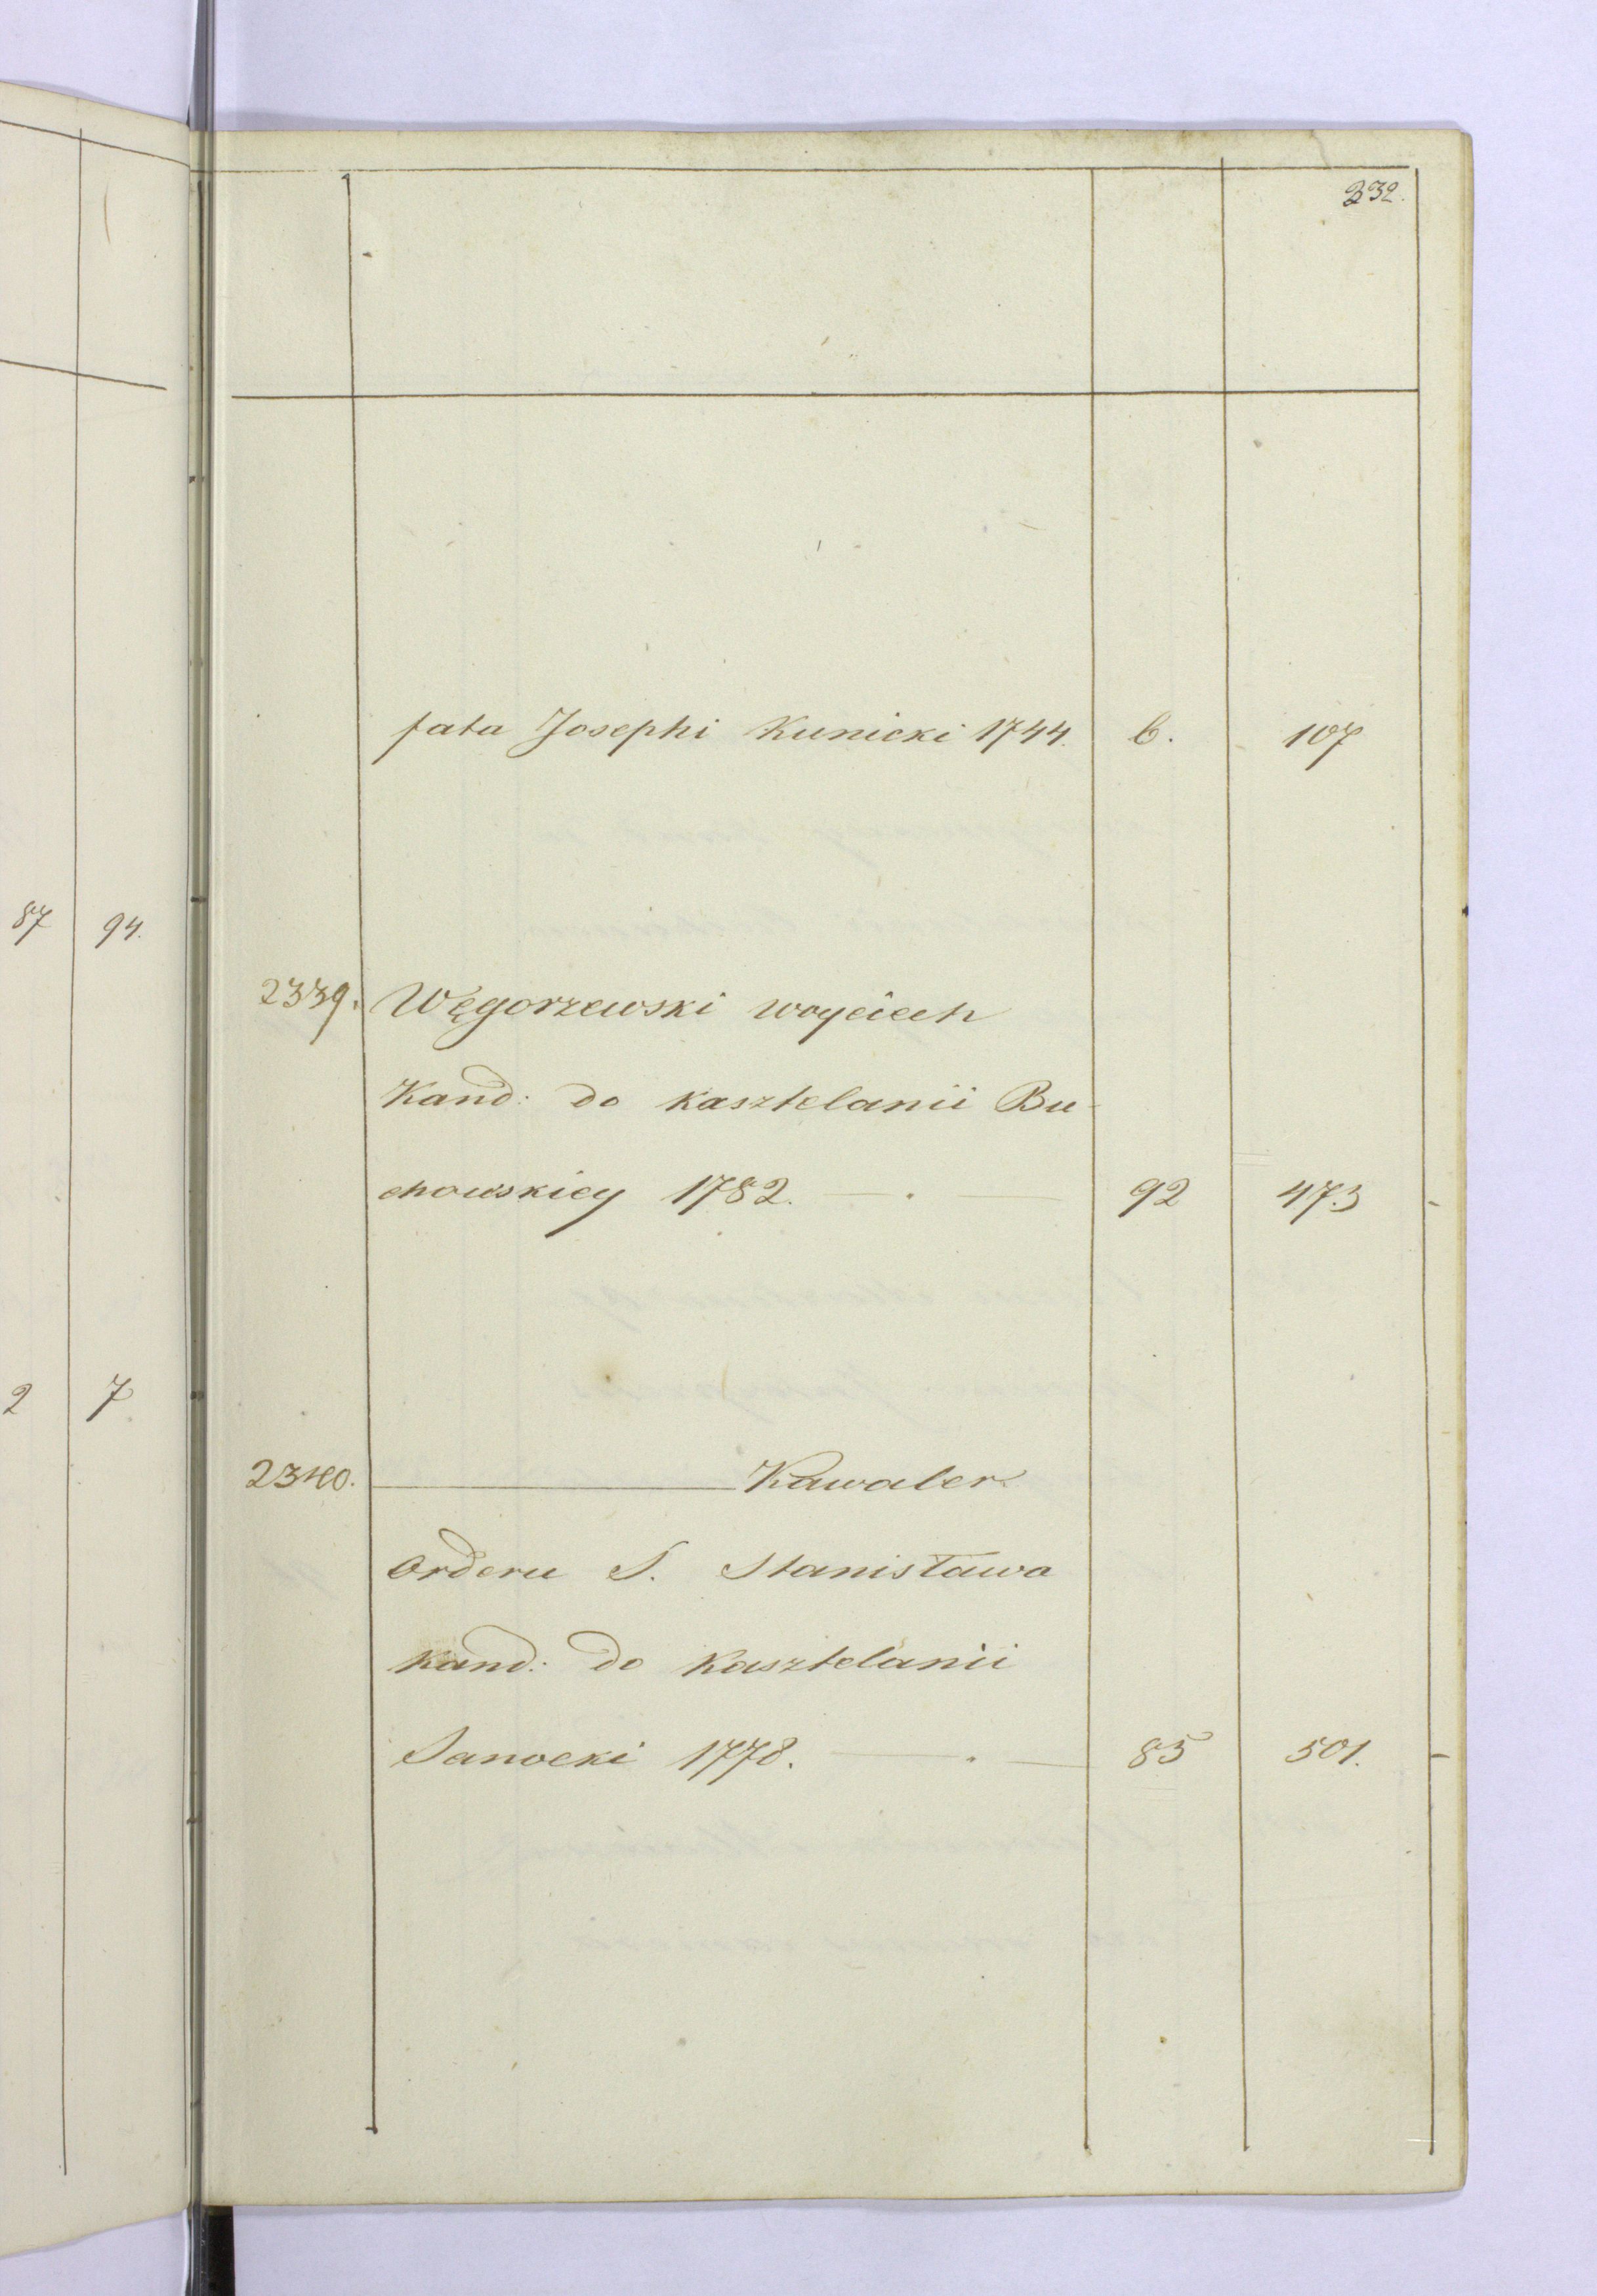 332.
fata Josephi Kunicki 1744. 6. 107
87 94.
2339. Węgorzewski Woyciech
Kand: do kasztelanii Bu-
chowskiey 1782. 92 473
2 7
2340. Kawaler
Orderu S. Stanisława
kand: do Kasztelanii
Sanocki 1778. 85 501.